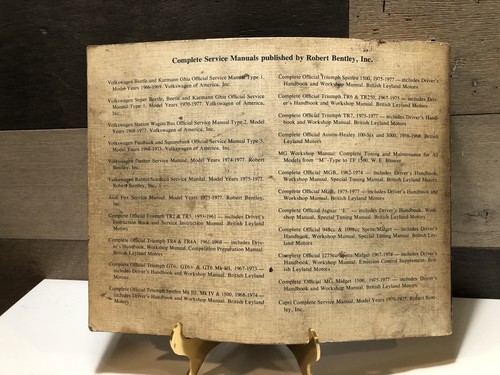 Complete Service Manuals published by Robert Bentley, Inc.
Volkswagen Beetle and Karmann Ghia Official Service Manual Type 1,
Model Years 1966-1969. Volkswagen of America, Inc.
Volkswagen Super Beetle, Beetle and Karmann Ghia Official Service
Manual Type 1, Model Years 1970-1977. Volkswagen of America,
Inc.
Volkswagen Station Wagon/Bus Official Service Manual Type 2, Model
Years 1968-1977. Volkswagen of America, Inc.
Volkswagen Fastback and Squareback Official Service Manual Type 3,
Model Years 1968-1973. Volkswagen of America, Inc.
Volkswagen Dasher Service Manual, Model Years 1974-1977. Robert
Bentley, Inc.
Volkswagen Rabbit/Scirocco Service Manual, Model Years 1975-1977.
Robert Bentley, Inc.
Audi Fox Service Manual, Model Years 1973-1977. Robert Bentley,
Inc.
Complete Official Triumph TR2 & TR3, 1953-1961 — includes Driver's
Instruction Book and Service Instruction Manual. British Leyland
Motors
Complete Official Triumph TR4 & TR4A, 1961-1968 — includes Driv-
er's Handbook, Workshop Manual, Competition Preparation Manual.
British Leyland Motors
Complete Official Triumph GT6, GT6+ & GT6 Mk III, 1967-1973 —
includes Driver's Handbook and Workshop Manual. British Leyland
Motors
Complete Official Triumph Spitfire Mk III, Mk IV & 1500, 1968-1974 —
includes Driver's Handbook and Workshop Manual. British Leyland
Motors
Complete Official Triumph Spitfire 1500, 1975-1977 — includes Driver's
Handbook and Workshop Manual. British Leyland Motors
Complete Official Triumph TR6 & TR250, 1967-1975 — includes Driv-
er's Handbook and Workshop Manual. British Leyland Motors
Complete Official Triumph TR7, 1975-1977 — includes Driver's Hand-
book and Workshop Manual. British Leyland Motors
Complete Official Austin-Healey 100-Six and 3000, 1956-1968. British
Leyland Motors
MG Workshop Manual: Complete Tuning and Maintenance for All
Models from "M" Type to TF 1500. W. E. Blower
Complete Official MGB, 1962-1974 — includes Driver's Handbook,
Workshop Manual, Special Tuning Manual. British Leyland Motors
Complete Official MGB, 1975-1977 — includes Driver's Handbook and
Workshop Manual. British Leyland Motors
Complete Official Jaguar "E" — includes Driver's Handbook, Work-
shop Manual, Special Tuning Manual. British Leyland Motors
Complete Official 948cc & 1098cc Sprite/Midget — includes Driver's
Handbook, Workshop Manual, Special Tuning Manual. British Ley-
land Motors
Complete Official 1275cc Sprite/Midget 1967-1974 — includes Driver's
Handbook, Workshop Manual, Emission Control Supplement. Brit-
ish Leyland Motors
Complete Official MG Midget 1500, 1975-1977 — includes Driver's
Handbook and Workshop Manual. British Leyland Motors
Capri Complete Service Manual, Model Years 1970-1977. Robert Bent-
ley, Inc.